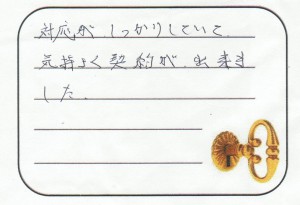 対応が しっかりしていて、
気持よく契約が、出来ま
した。